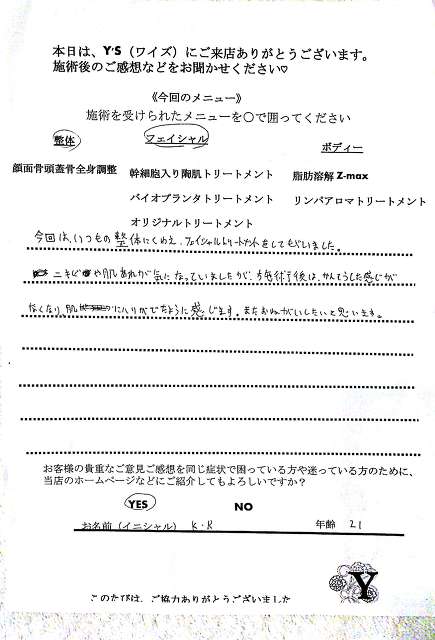 本日は、Y'S（ワイズ）にご来店ありがとうございます。
施術後のご感想などをお聞かせください♡
《今回のメニュー》
施術を受けられたメニューを〇で囲ってください
整体 フェイシャル ボディー
顔面骨頭蓋骨全身調整 幹細胞入り陶肌トリートメント 脂肪溶解 Z-max
バイオプランタトリートメント リンパアロマトリートメント
オリジナルトリートメント
今回は、いつもの整体にくわえ、フェイシャルトリートメントをしてもらいました。
ニキビや肌あれが気になっていましたが、施術後は、かんそうした感じが
なくなり、肌にハリがでたように感じます。またおねがいしたいと思います。
お客様の貴重なご意見ご感想を同じ症状で困っている方や迷っている方のために、
当店のホームページなどにご紹介してもよろしいですか？
YES NO
お名前（イニシャル） K・R 年齢 21
Y
このたびは、ご協力ありがとうございました